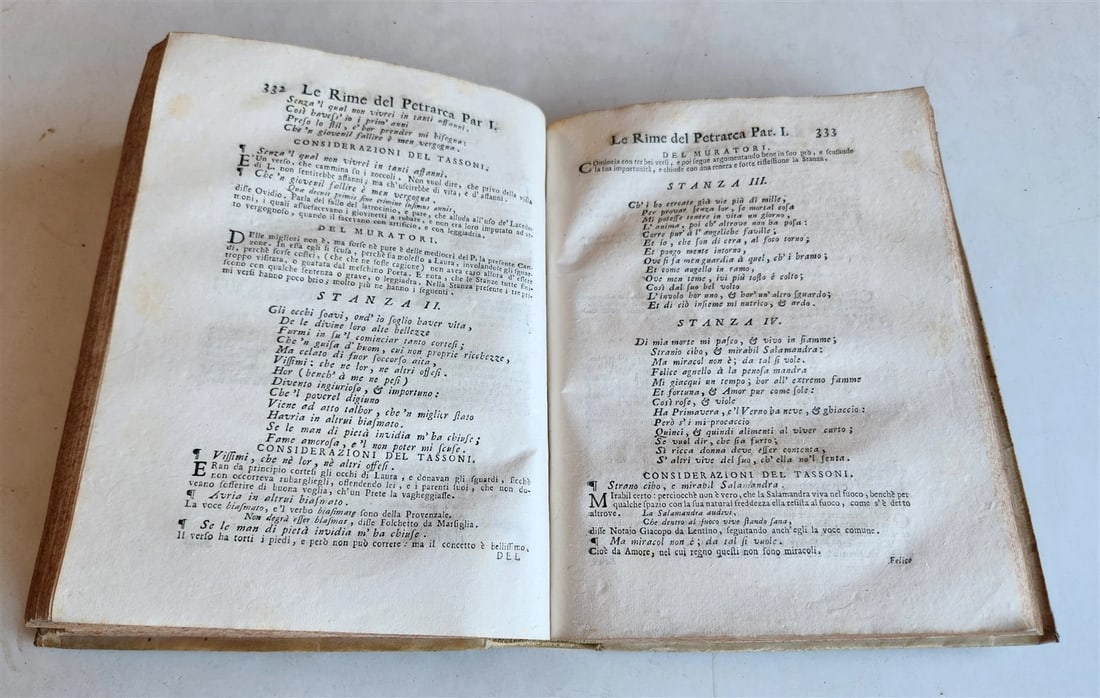 332 Le Rime del Petrarca Par. I.
Senza 'l qual non vivrei in tanti affanni.
Così havess' io i prim' anni
Preso lo stil, c'hor prender mi bisogna:
Che 'n giovenil fallire è men vergogna.
CONSIDERAZIONI DEL TASSONI.
¶ Senza 'l qual non vivrei in tanti affanni.
E'Un verso, che cammina su i zoccoli. Non vuol dire, che privo della vista
di L. non sentirebbe affanni; ma ch'uscirebbe di vita, e d'affanni.
¶ Che 'n giovenil fallire è men vergogna.
Quæ decuit primis sine crimine lusimus annis,
disse Ovidio. Parla del fallo del latrocinio, e pare, che alluda all'uso de' Lacedemoni,
i quali assuefacevano i giovinetti a rubare, e non era loro imputado ad un
vergognoso, quando il facevano con artificio, e con leggiadria.
DEL MURATORI.
DElle migliori non è, ma forse nè pure è delle mediocri del P. la presente Canzone.
In essa egli si scusa, perchè sia molesto a Laura, involandole gli sguardi,
perchè forse costei, (che che ne fosse cagione) non avea caro allora d'essere
troppo visitata, o guatata dal meschino Poeta. E nota, che le Stanze tutte finiscono
con qualche sentenza o grave, o leggiadra. Nella Stanza presente i tre primi
versi hanno poco brio; molto più ne hanno i seguenti.
STANZA II.
Gli occhi soavi, ond' io soglio haver vita,
De le divine loro alte bellezze
Furmi in su 'l cominciar tanto cortesi;
Che 'n guisa d' huom, cui non proprie ricchezze,
Ma celato di fuor soccorso aita,
Vissimi: che ne lor, ne altri offesi.
Hor (bench' à me ne pesi)
Divento ingiurioso, & importuno:
Che 'l poverel digiuno
Viene ad atto talhor, che 'n miglior stato
Havria in altrui biasmato.
Se le man di pietà invidia m' ha chiuse;
Fame amorosa, e 'l non poter mi scuse.
CONSIDERAZIONI DEL TASSONI.
¶ Vissimi, che nè lor, nè altri offesi.
ERan da principio cortesi gli occhi di Laura, e donavan gli sguardi, sicchè
non occorreva rubarglieli, offendendo lei, e i parenti suoi, che non dovevano
sofferire di buona voglia, ch'un Prete la vagheggiasse.
¶ Avria in altrui biasmato.
La voce biasmato, e 'l verbo biasimare sono della Provenzale.
Non degrà esser biasmat, disse Folchetto da Marsiglia.
¶ Se le man di pietà invidia m' ha chiuse.
Il verso ha totti i piedi, e però non può correre: ma il concetto è bellissimo.
DEL
Le Rime del Petrarca Par. I. 333
DEL MURATORI.
COmincia con tre bei versi, e poi segue argomentando bene in suo prò, e scusando
la sua importunità, e chiude con una tenera e forte riflessione la Stanza.
STANZA III.
Ch' i ho cercate già vie più di mille,
Per provar senza lor, se mortal cosa
Mi potesse tenere in vita un giorno,
L' anima, poi ch' altrove non ha posa:
Corre pur' à l' angeliche faville;
Et io, che son di cera, al foco torno;
Et pongo mente intorno,
Ove si fa men guardia à quel, ch' i bramo;
Et come augello in ramo,
Ove men teme, ivi più tosto è colto;
Così dal suo bel volto
L' involo hor uno, & hor' un' altro sguardo;
Et di ciò insieme mi nutrico, & ardo.
STANZA IV.
Di mia morte mi pasco, & vivo in fiamme;
Stranio cibo, & mirabil Salamandra:
Ma miracol non è; da tal si vole.
Felice agnello à la penosa mandra
Mi giacqui un tempo; hor all' extremo famme
Et fortuna, & Amor pur come sole:
Così rose, & viole
Ha Primavera, e 'l Verno ha neve, & ghiaccio:
Però s' i mi procaccio
Quinci, & quindi alimenti al viver curto;
Se vuol dir, che sia furto;
Sì ricca donna deve esser contenta,
S' altri vive del suo, ch' ella no 'l senta.
CONSIDERAZIONI DEL TASSONI.
¶ Strano cibo, e mirabil Salamandra.
MIrabil certo: perciocchè non è vero, che la Salamandra viva nel fuoco, benchè per
qualche spazio con la sua natural freddezza ella resista al fuoco, come s'è detto
altrove.
La Salamandra audivi,
Che dentro al fuoco vive stando sana,
disse Notaio Giacopo da Lentino, seguitando anch'egli la voce comune.
¶ Ma miracol non è; da tal si vuole.
Cioè da Amore, nel cui regno questi non sono miracoli.
Felice